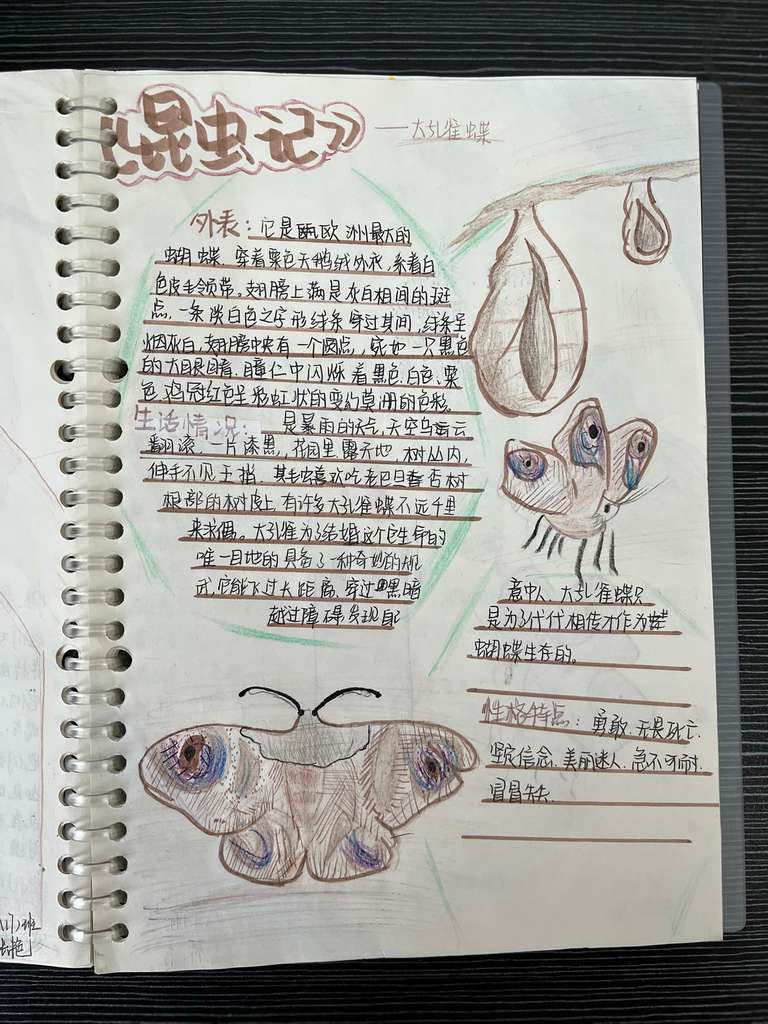 《昆虫记》
——大孔雀蝶
外表：它是欧洲最大的
蝴蝶，穿着栗色天鹅绒外衣，系着白
色皮毛领带。翅膀上满是灰白相间的斑
点，一条淡白色之字形线条穿过其间，线条呈
烟灰白，翅膀中央有一个圆点，宛如一只黑色
的大眼睛，瞳仁中闪烁着黑色、白色、栗
色、鸡冠红色呈彩虹状的变幻莫测的色彩。
生活情况：是暴雨的天气，天空乌云
翻滚，一片漆黑，花园里露天地，树丛内，
伸手不见五指。其毛虫喜欢吃老巴旦杏树
根部的树皮，有许多大孔雀蝶不远千里
来求偶。大孔雀为了结婚这个它生存的
唯一目地的具备了一种奇妙的
武，它能飞过大距离，穿过黑暗
越过障碍发现自己
意中人、大孔雀蝶只
是为了代代相传才作为
蝴蝶生存的。
性格特点：勇敢、无畏死亡、
坚定信念、美丽迷人、急不可耐、
冒冒失失
(17)班